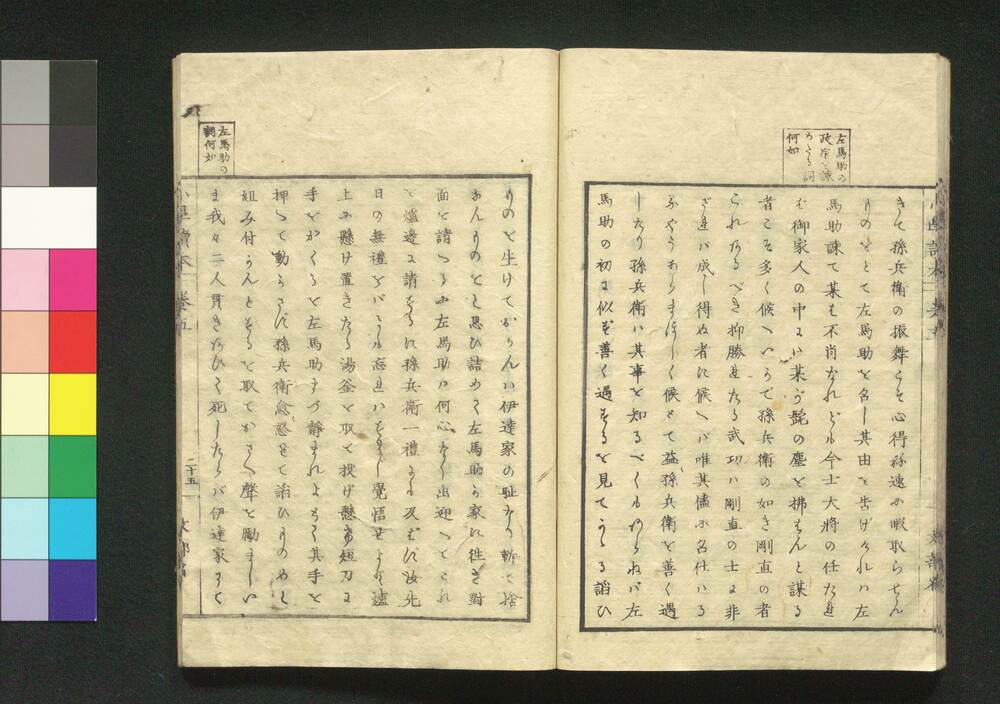 左馬助の
政宗を諫
めたる詞
何如
きて孫兵衛の振舞こそ心得ね速に暇取らせん
ものをとて左馬助を召し其由を告げければ左
馬助諫て某も不肖なれども今士大将の任たれ
ば御家人の中には某が髭の塵を拂はんと謀る
者こそ多く候へいかで孫兵衛の如き剛直の者
これあるべき抑勝れたる武功は剛直の士に非
ざれば成し得ぬ者に候へば唯其儘に召仕はる
べうもあらまほしく候とて益孫兵衛を善く過
したり孫兵衛は其事を知るべくもあらねば左
馬助の初に似ず善く過するを見てうたる諂ひ
左馬助の
詞何如
ものを生けておかんは伊達家の耻なり斬て捨
あんものをと思ひ詰めて左馬助が家に往き對
面を請へるに左馬助は何心なく出迎へこれ
を爐邊に請するに孫兵衛一禮にも及ばず汝先
日の無禮をばよも忘れはすまじ覺悟せよと爐
上に懸け置きたる湯釜を取て投げ懸け短刀に
手をかくるを左馬助まづ静まれよとて其手を
押へて動かさず孫兵衛愈怒て諂ひものめと
組み付かんとするを取ておさへ聲を勵まし
ま我々二人貫きあひて死したらば伊達家にて
小學讀本 巻五
二十五
文部省